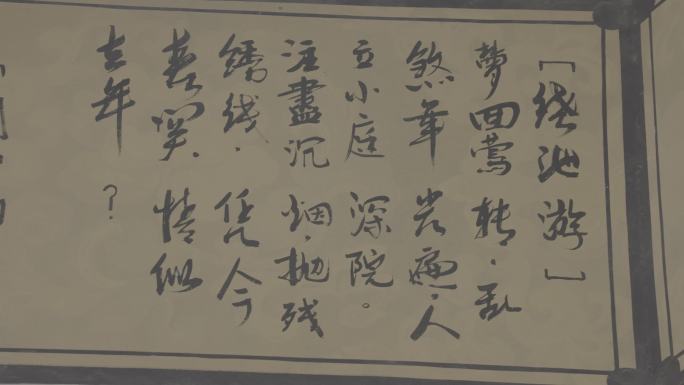 [绕池游]
夢回莺转·乱
煞年光遍·人
立小庭深院。
注盡沉烟·抛残
绣线·凭今
春关情似
去年?